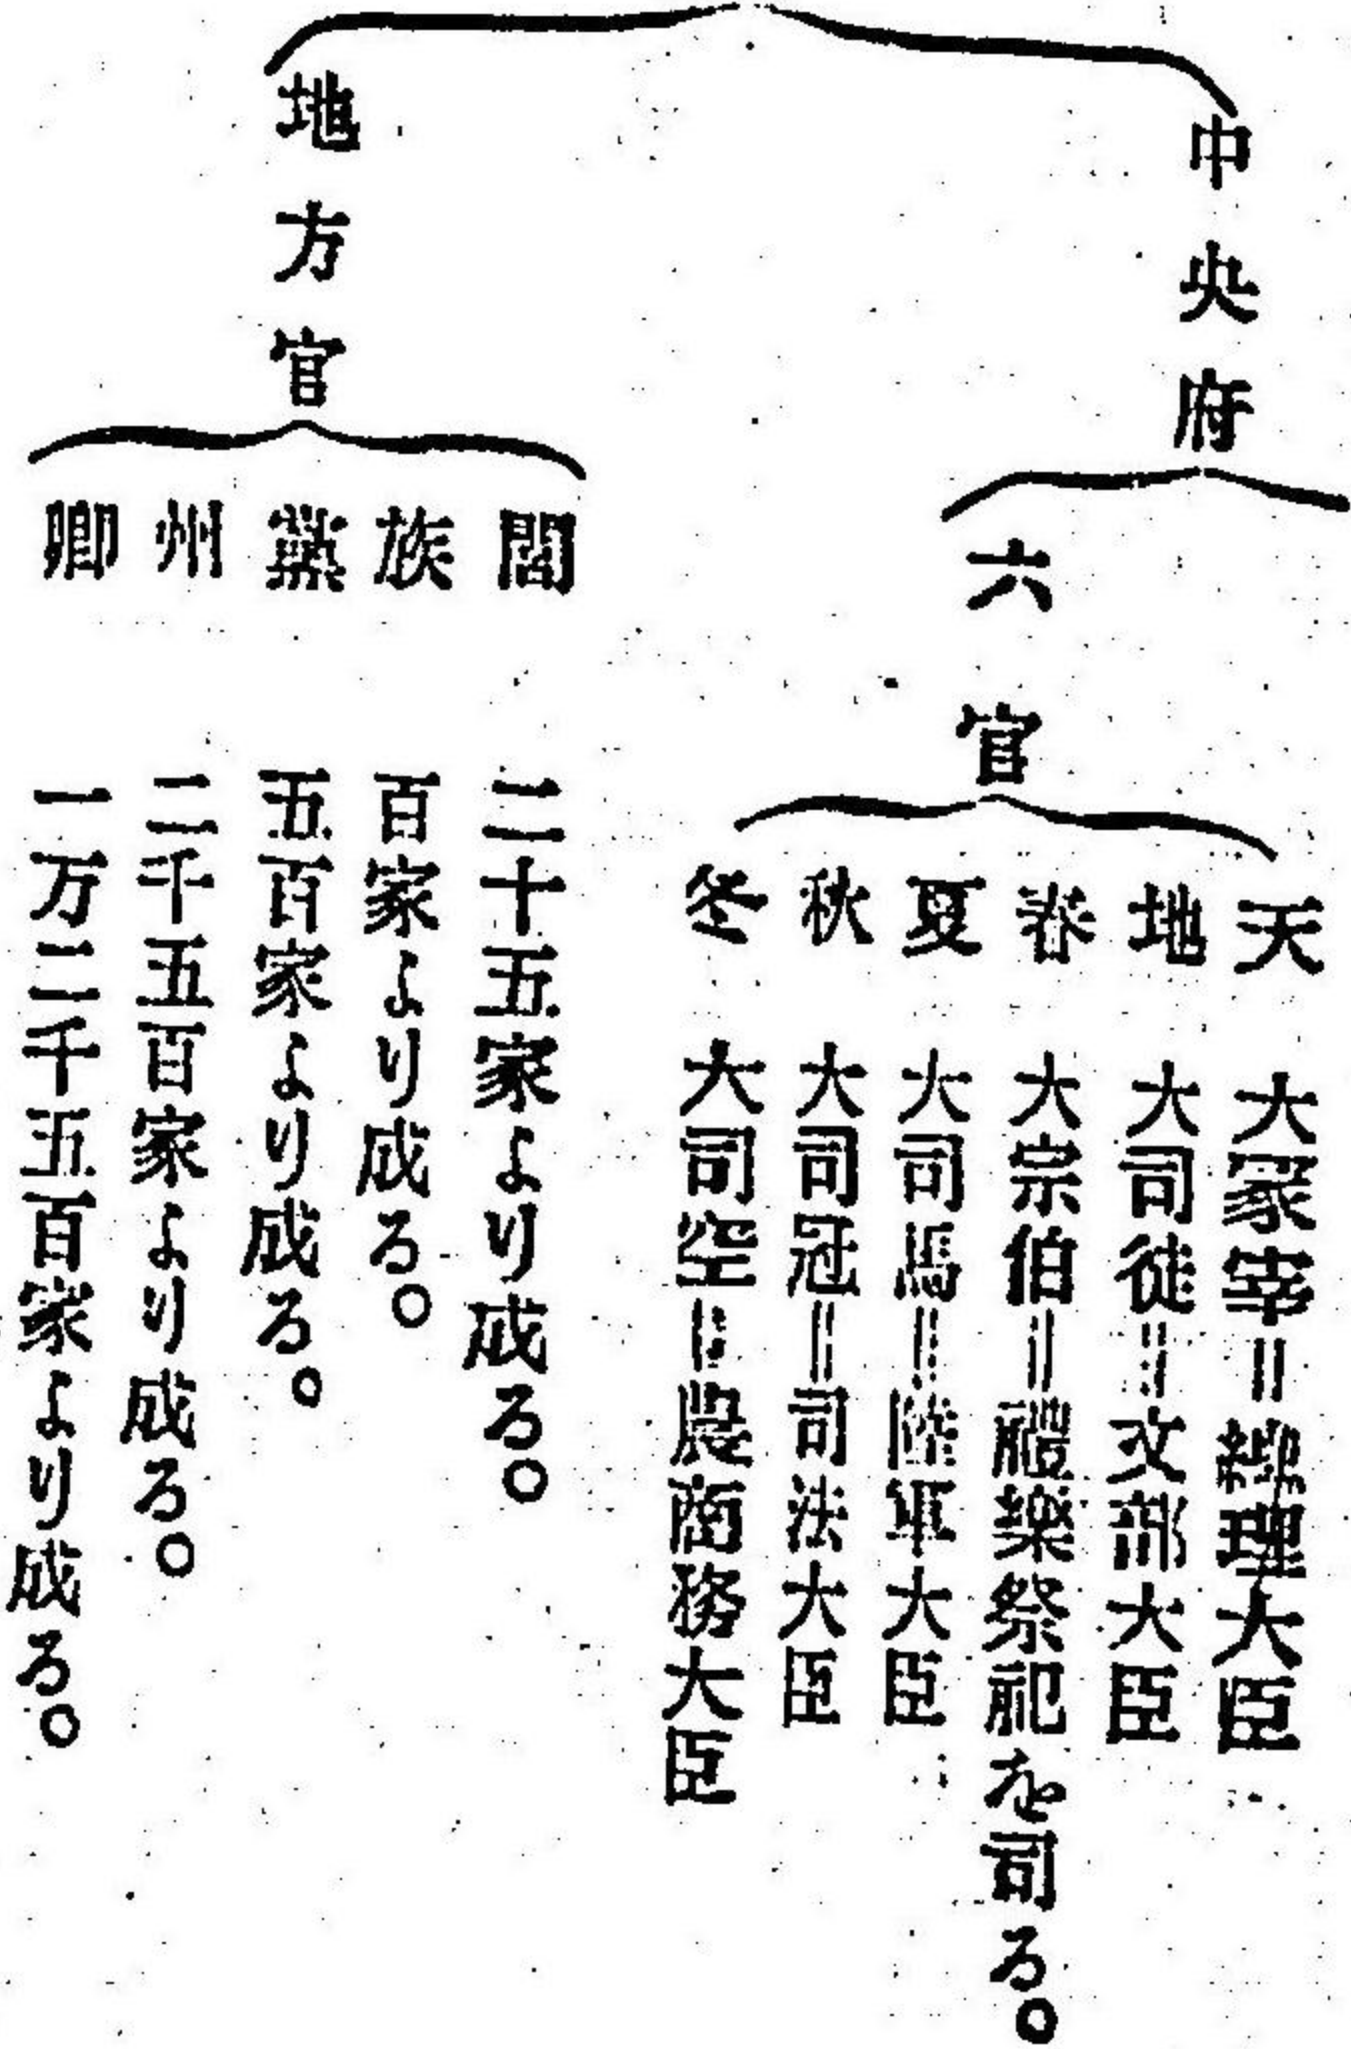 中央府
六官
天 大冢宰＝總理大臣
地 大司徒＝文部大臣
春 大宗伯＝禮樂祭祀を司る。
夏 大司馬＝陸軍大臣
秋 大司冦＝司法大臣
冬 大司空＝農商務大臣
地方官
閭 二十五家より成る。
族 百家より成る。
黨 五百家より成る。
州 二千五百家より成る。
鄕 一万二千五百家より成る。